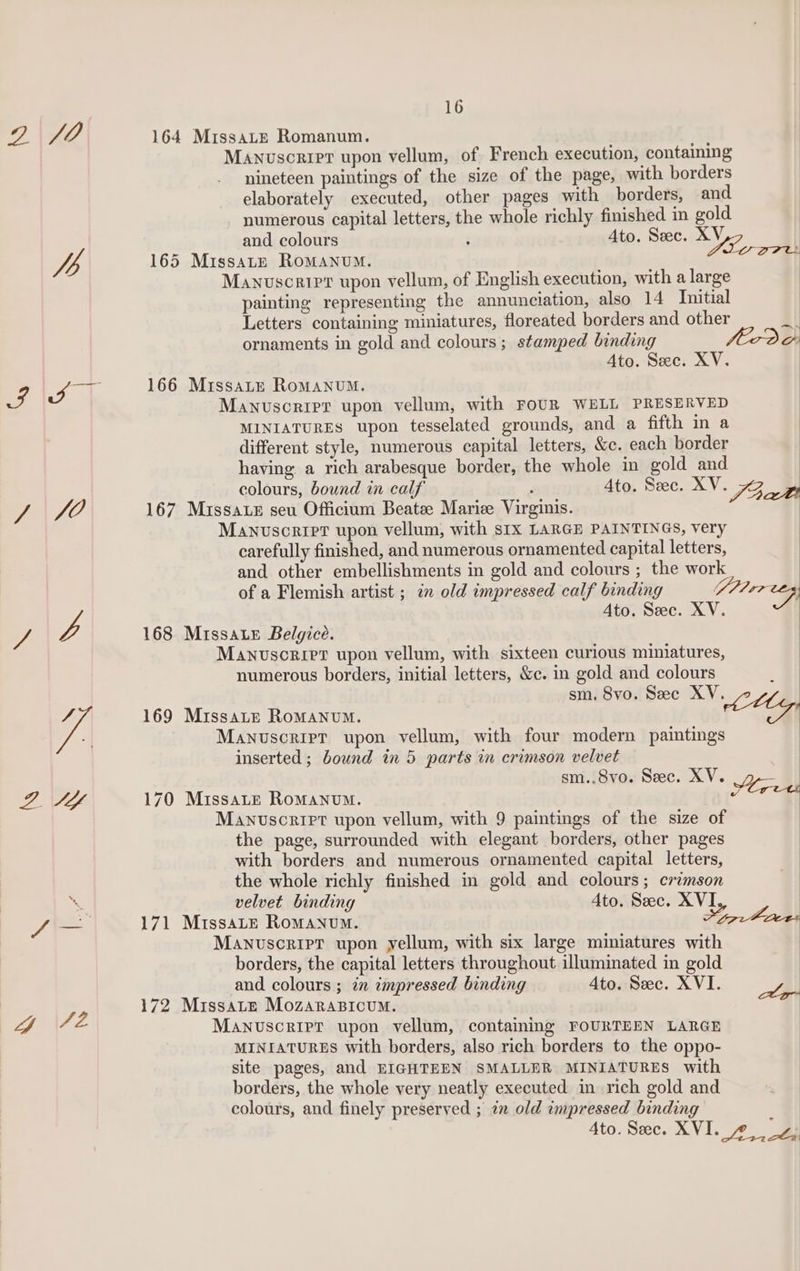 16
2 10
164 Missale Romanum.
Manuscript upon vellum, of French execution, containing
nineteen paintings of the size of the page, with borders
elaborately executed, other pages with borders, and
numerous capital letters, the whole richly finished in gold
and colours 4to. Sæc. XV.
165 Missale Romanum.
Manuscript upon vellum, of English execution, with a large
painting representing the annunciation, also 14 Initial
Letters containing miniatures, floreated borders and other
ornaments in gold and colours; stamped binding
4to. Sæc. XV.
166 Missale Romanum.
Manuscript upon vellum, with FOUR WELL PRESERVED
MINIATURES upon tesselated grounds, and a fifth in a
different style, numerous capital letters, &c. each border
having a rich arabesque border, the whole in gold and
colours, bound in calf 4to. Sæc. XV.
1 10
167 Missale seu Officium Beatæ Mariæ Virginis.
Manuscript upon vellum, with SIX LARGE PAINTINGS, very
carefully finished, and numerous ornamented capital letters,
and other embellishments in gold and colours; the work
of a Flemish artist; in old impressed calf binding
4to. Sæc. XV.
168 Missale Belgicè.
Manuscript upon vellum, with sixteen curious miniatures,
numerous borders, initial letters, &c. in gold and colours
sm. 8vo. Sæc XV.
169 Missale Romanum.
Manuscript upon vellum, with four modern paintings
inserted; bound in 5 parts in crimson velvet
sm. 8vo. Sæc. XV.
170 Missale Romanum.
Manuscript upon vellum, with 9 paintings of the size of
the page, surrounded with elegant borders, other pages
with borders and numerous ornamented capital letters,
the whole richly finished in gold and colours; crimson
velvet binding 4to. Sæc. XVI.
171 Missale Romanum.
Manuscript upon vellum, with six large miniatures with
borders, the capital letters throughout illuminated in gold
and colours; in impressed binding 4to. Sæc. XVI.
4 12
172 Missale Mozarabicum.
Manuscript upon vellum, containing FOURTEEN LARGE
MINIATURES with borders, also rich borders to the oppo-
site pages, and EIGHTEEN SMALLER MINIATURES with
borders, the whole very neatly executed in rich gold and
colours, and finely preserved; in old impressed binding
4to. Sæc. XVI.